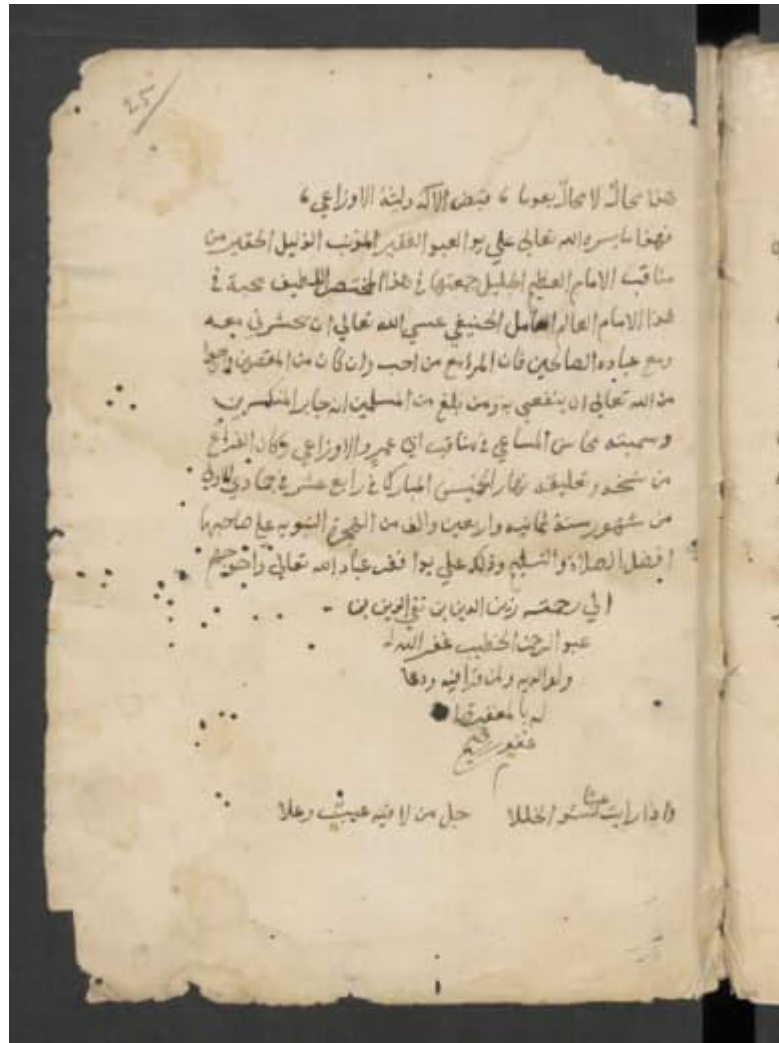 25
هذا محال لا محال بعونا ، فتبض الاكه ولثة الاوزاعي ،
فهذا ما يسره الله تعالى علي يد العبد الفقير المذنب الذليل الحقير من
مناقب الامام العظيم الجليل جمعتها في هذا المختصر اللطيف محبة في
هذا الامام العالم العامل الحنيفي عسي الله تعالى ان يحشرني معه
ومع عباده الصالحين فان المرؤ مع من احب وان كان من المقصرين
من الله تعالى ان ينفعني به ومن بلغ من المسلمين انه جابر المنكسرين
وسميته محاسن المساعي في مناقب ابي عمرو الاوزاعي وكان الفراغ
من نسخه وتعليقه نهار الخميس المبارك في رابع عشر جمادي
من شهور سنة ثمانيه واربعين والف من الهجرة النبويه علي صاحبها
افضل الصلاة والتسليم وذلك علي يد افقر عباد الله تعالى واحوجهم
الي رحمته زين الدين بن تقي الدين بن
عبد الرحمن الخطيب غفر الله له
ولوالديه ولمن قرا فيه ودعا
له بالمغفرة
واذا رايت عيبا فسد الخللا جل من لا فيه عيب وعلا